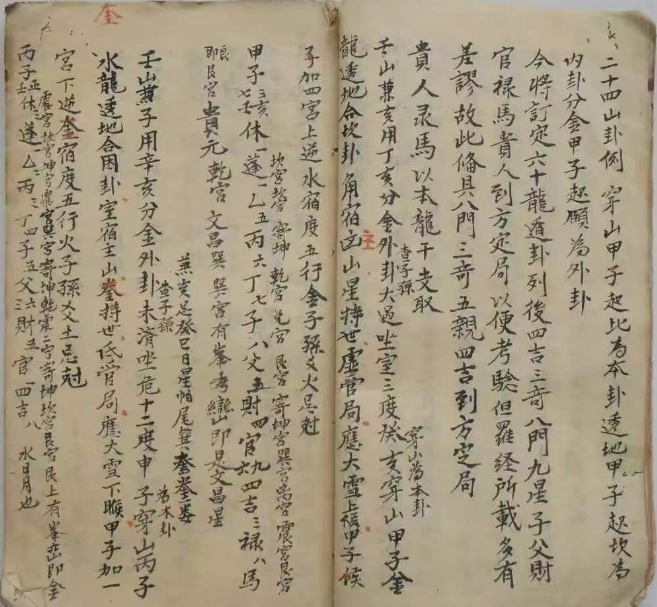 二十四山卦例 穿山甲子起比為本卦透地甲子起坎為
內卦分金甲子起頤為外卦
今將訂定六十龍遁卦列後四吉三奇八門九星子父財
官祿馬貴人到方定局以便考驗但羅經所載多有
差謬故此備具八門三奇五親四吉到方定局
貴人录馬以本龍干支取
穿山為本卦
壬山兼亥用丁亥分金外卦大過坐室三度癸亥穿山甲子金
查子孫
龍透地合坎卦角宿 山星持世虛官局應大雪上 甲子候
主
子加四宮上逆水宿度五行金子孫父火忌尅
坎宮 乾宮 宮 艮宮 寄坤宮巽宮 宮 震宮 宮
甲子 三亥七壬 休一蓬一乙五丙六丁七子八父五財四官九四吉三禄八馬
六
良即艮宮 貴元 乾宮 文昌巽 巽宮有峯 巒即是文昌星
兼亥忌癸巳日星 尾箕 奎婁
為本卦
壬山兼子用辛亥分金外卦未濟坐危十二度甲子穿山丙子
查子孫
水龍透地合困卦室宿土山 持世氐官局應大雪下 甲子加一
宮下逆奎宿度五行火子孫父土忌尅
奎
震宮坎宮坤宮震宮 寄坤乾震二字寄坤坎宮艮宮艮上有峯巒即金
丙子 休 蓬 乙二丙三丁四子五父六財五官一四吉八 水日月也